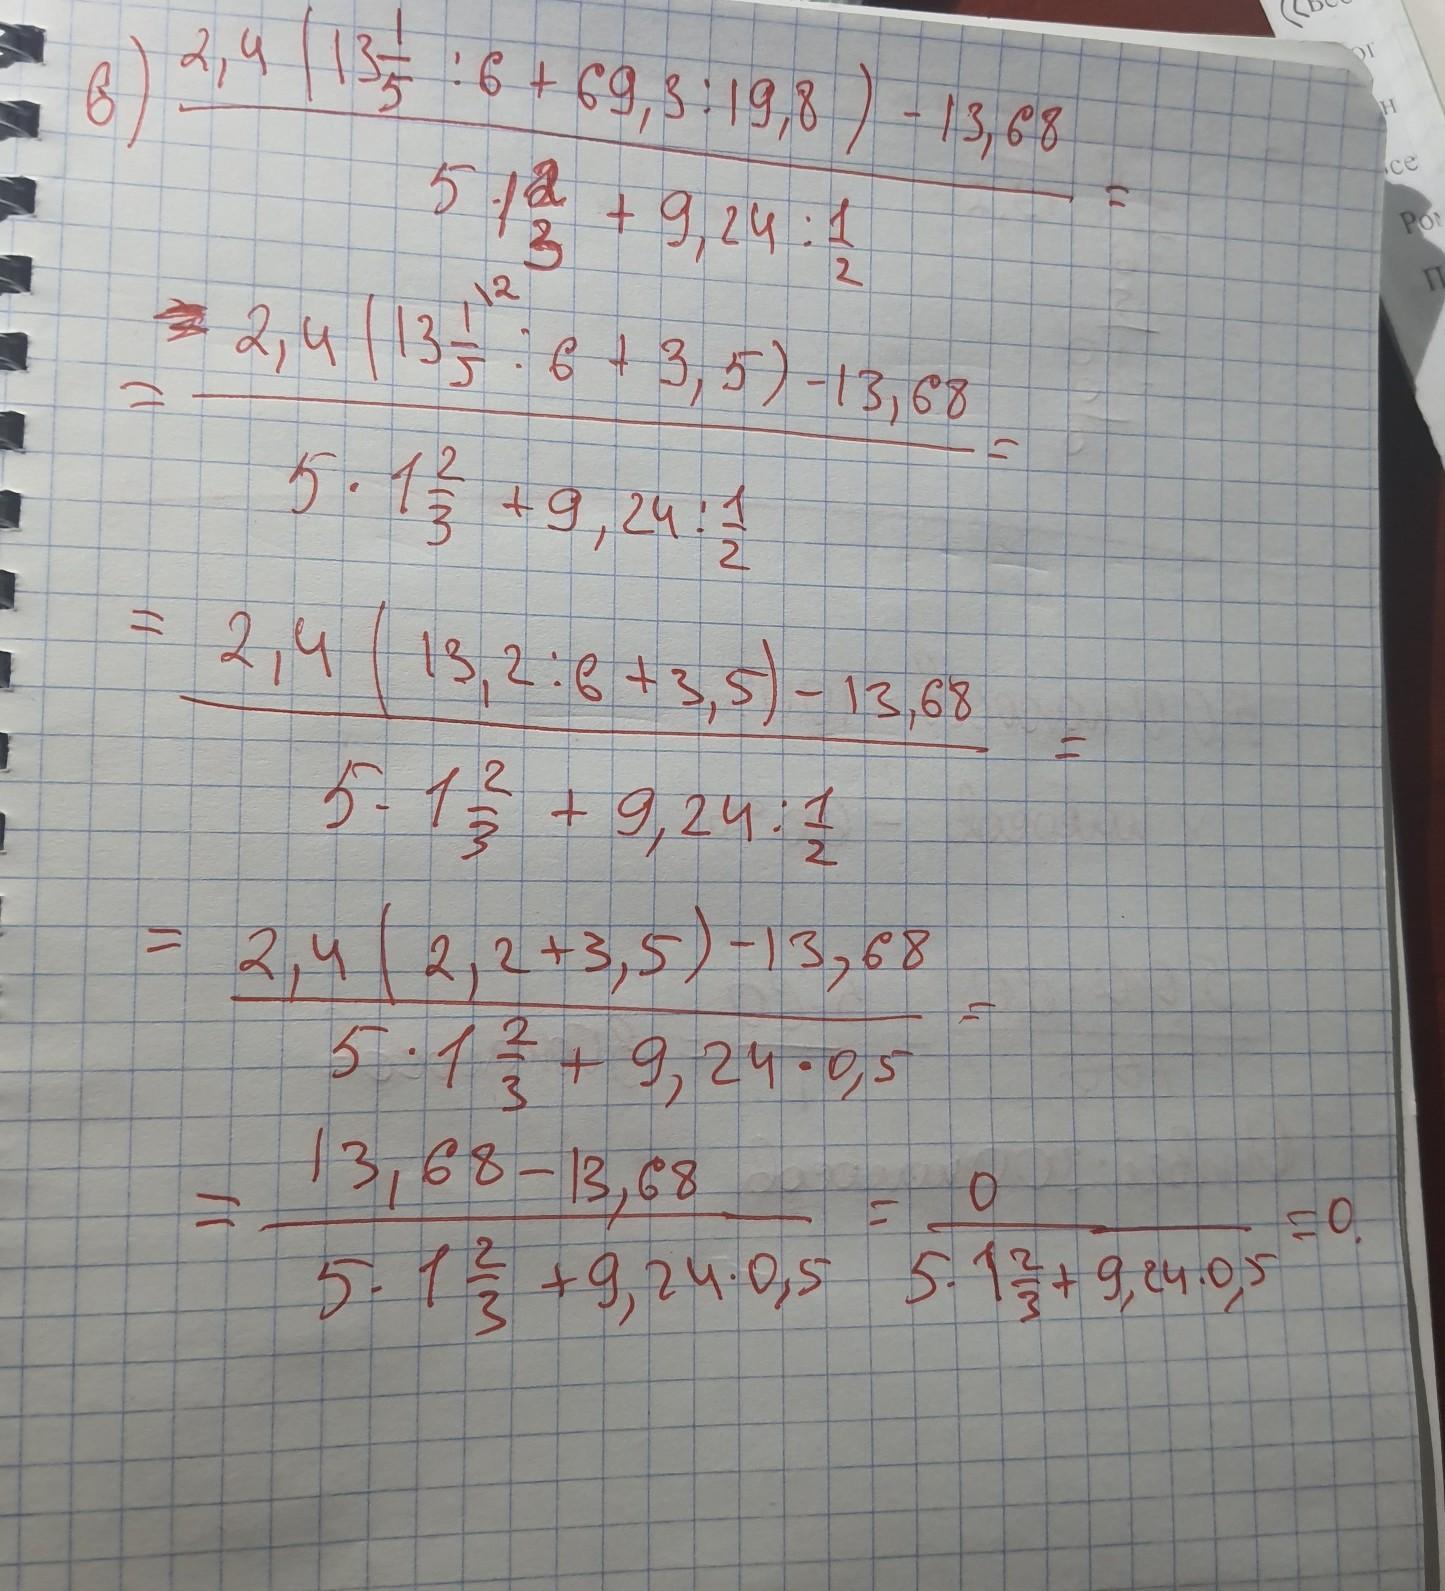 в) 2,4 (13 1/5 : 6 + 69,3 : 19,8) - 13,68
5 · 1 2/3 + 9,24 : 1/2 =
2,4 (13 1/5 \2 : 6 + 3,5) - 13,68
= =
5 · 1 2/3 + 9,24 : 1/2
= 2,4 (13,2 : 6 + 3,5) - 13,68 =
5 · 1 2/3 + 9,24 : 1/2
= 2,4 (2,2 + 3,5) - 13,68 =
5 · 1 2/3 + 9,24 · 0,5
= 13,68 - 13,68 = 0 = 0.
5 · 1 2/3 + 9,24 · 0,5 5 · 1 2/3 + 9,24 · 0,5